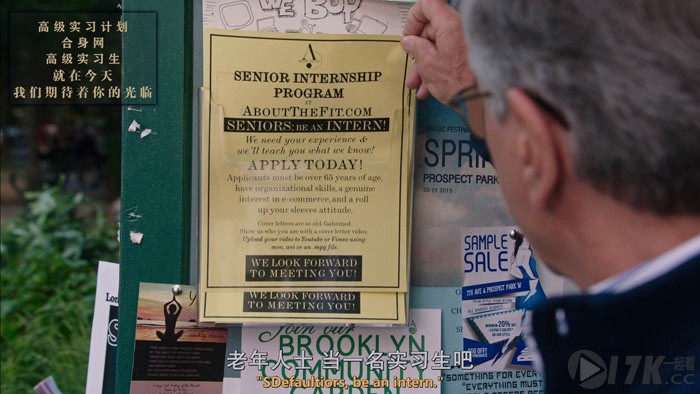 高级实习计划
合身网
高级实习生
就在今天
我们期待着你的光临
WE BUY
A
SENIOR INTERNSHIP
PROGRAM
AT
ABOUTTHEFIT.COM
SENIORS: BE AN INTERN!
We need your experience &
we'll teach you what we know!
APPLY TODAY!
Applicants must be over 65 years of age,
have organizational skills, a genuine
interest in e-commerce, and a roll
up your sleeves attitude.
Cover letters are so old-fashioned.
Show us who you are with a cover letter video.
Upload your video to Youtube or Vimeo using:
.mov, .avi or an .mpg file.
WE LOOK FORWARD
TO MEETING YOU!
WE LOOK FORWARD
TO MEETING YOU!
MUSIC FESTIVAL
SPRI
PROSPECT PARK
09 21 2015
SAMPLE
SALE
7TH AVE & PROSPECT PARK W
20% OFF
Join our
BROOKLYN
COMMUNITY
GARDEN
SOMETHING FOR
"EVERYTHING MUST
老年人士 当一名实习生吧
"SDefaultiors, be an intern."
17K.CC
一起看